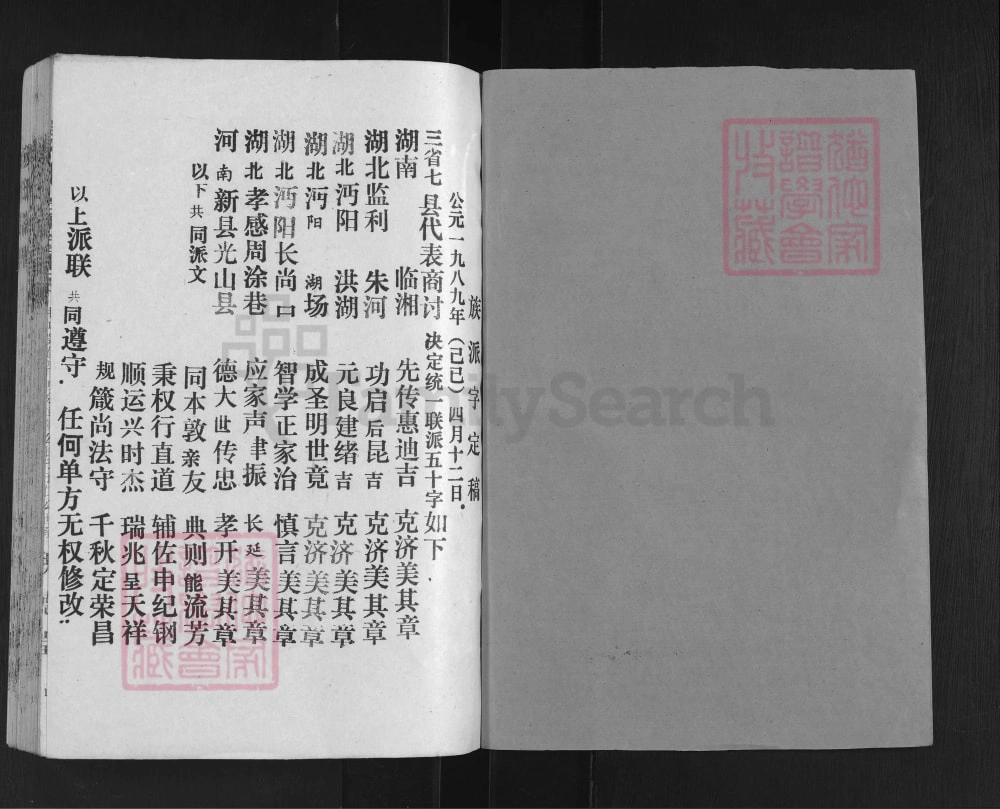 族派字定稿
公元一九八九年(己巳)四月十二日.
三省七县代表商讨 决定统一联派五十字如下.
湖南 临湘 先传惠迪吉 克济美其章
湖北监利 朱河 功启后昆吉 克济美其章
湖北沔阳 洪湖 元良建绪吉 克济美其章
湖北沔阳 湖场 成圣明世竟 克济美其章
湖北沔阳长尚口 智学正家治 慎言美其章
湖北孝感周涂巷 应家声聿振 长延美其章
河南新县光山县 德大世传忠 孝开美其章
以下共同派文 同本敦亲友 典则能流芳
秉权行直道 辅佐申纪钢
顺运兴时杰 瑞兆呈天祥
规箴尚法守 千秋定荣昌
以上派联共同遵守. 任何单方无权修改:
FamilySearch